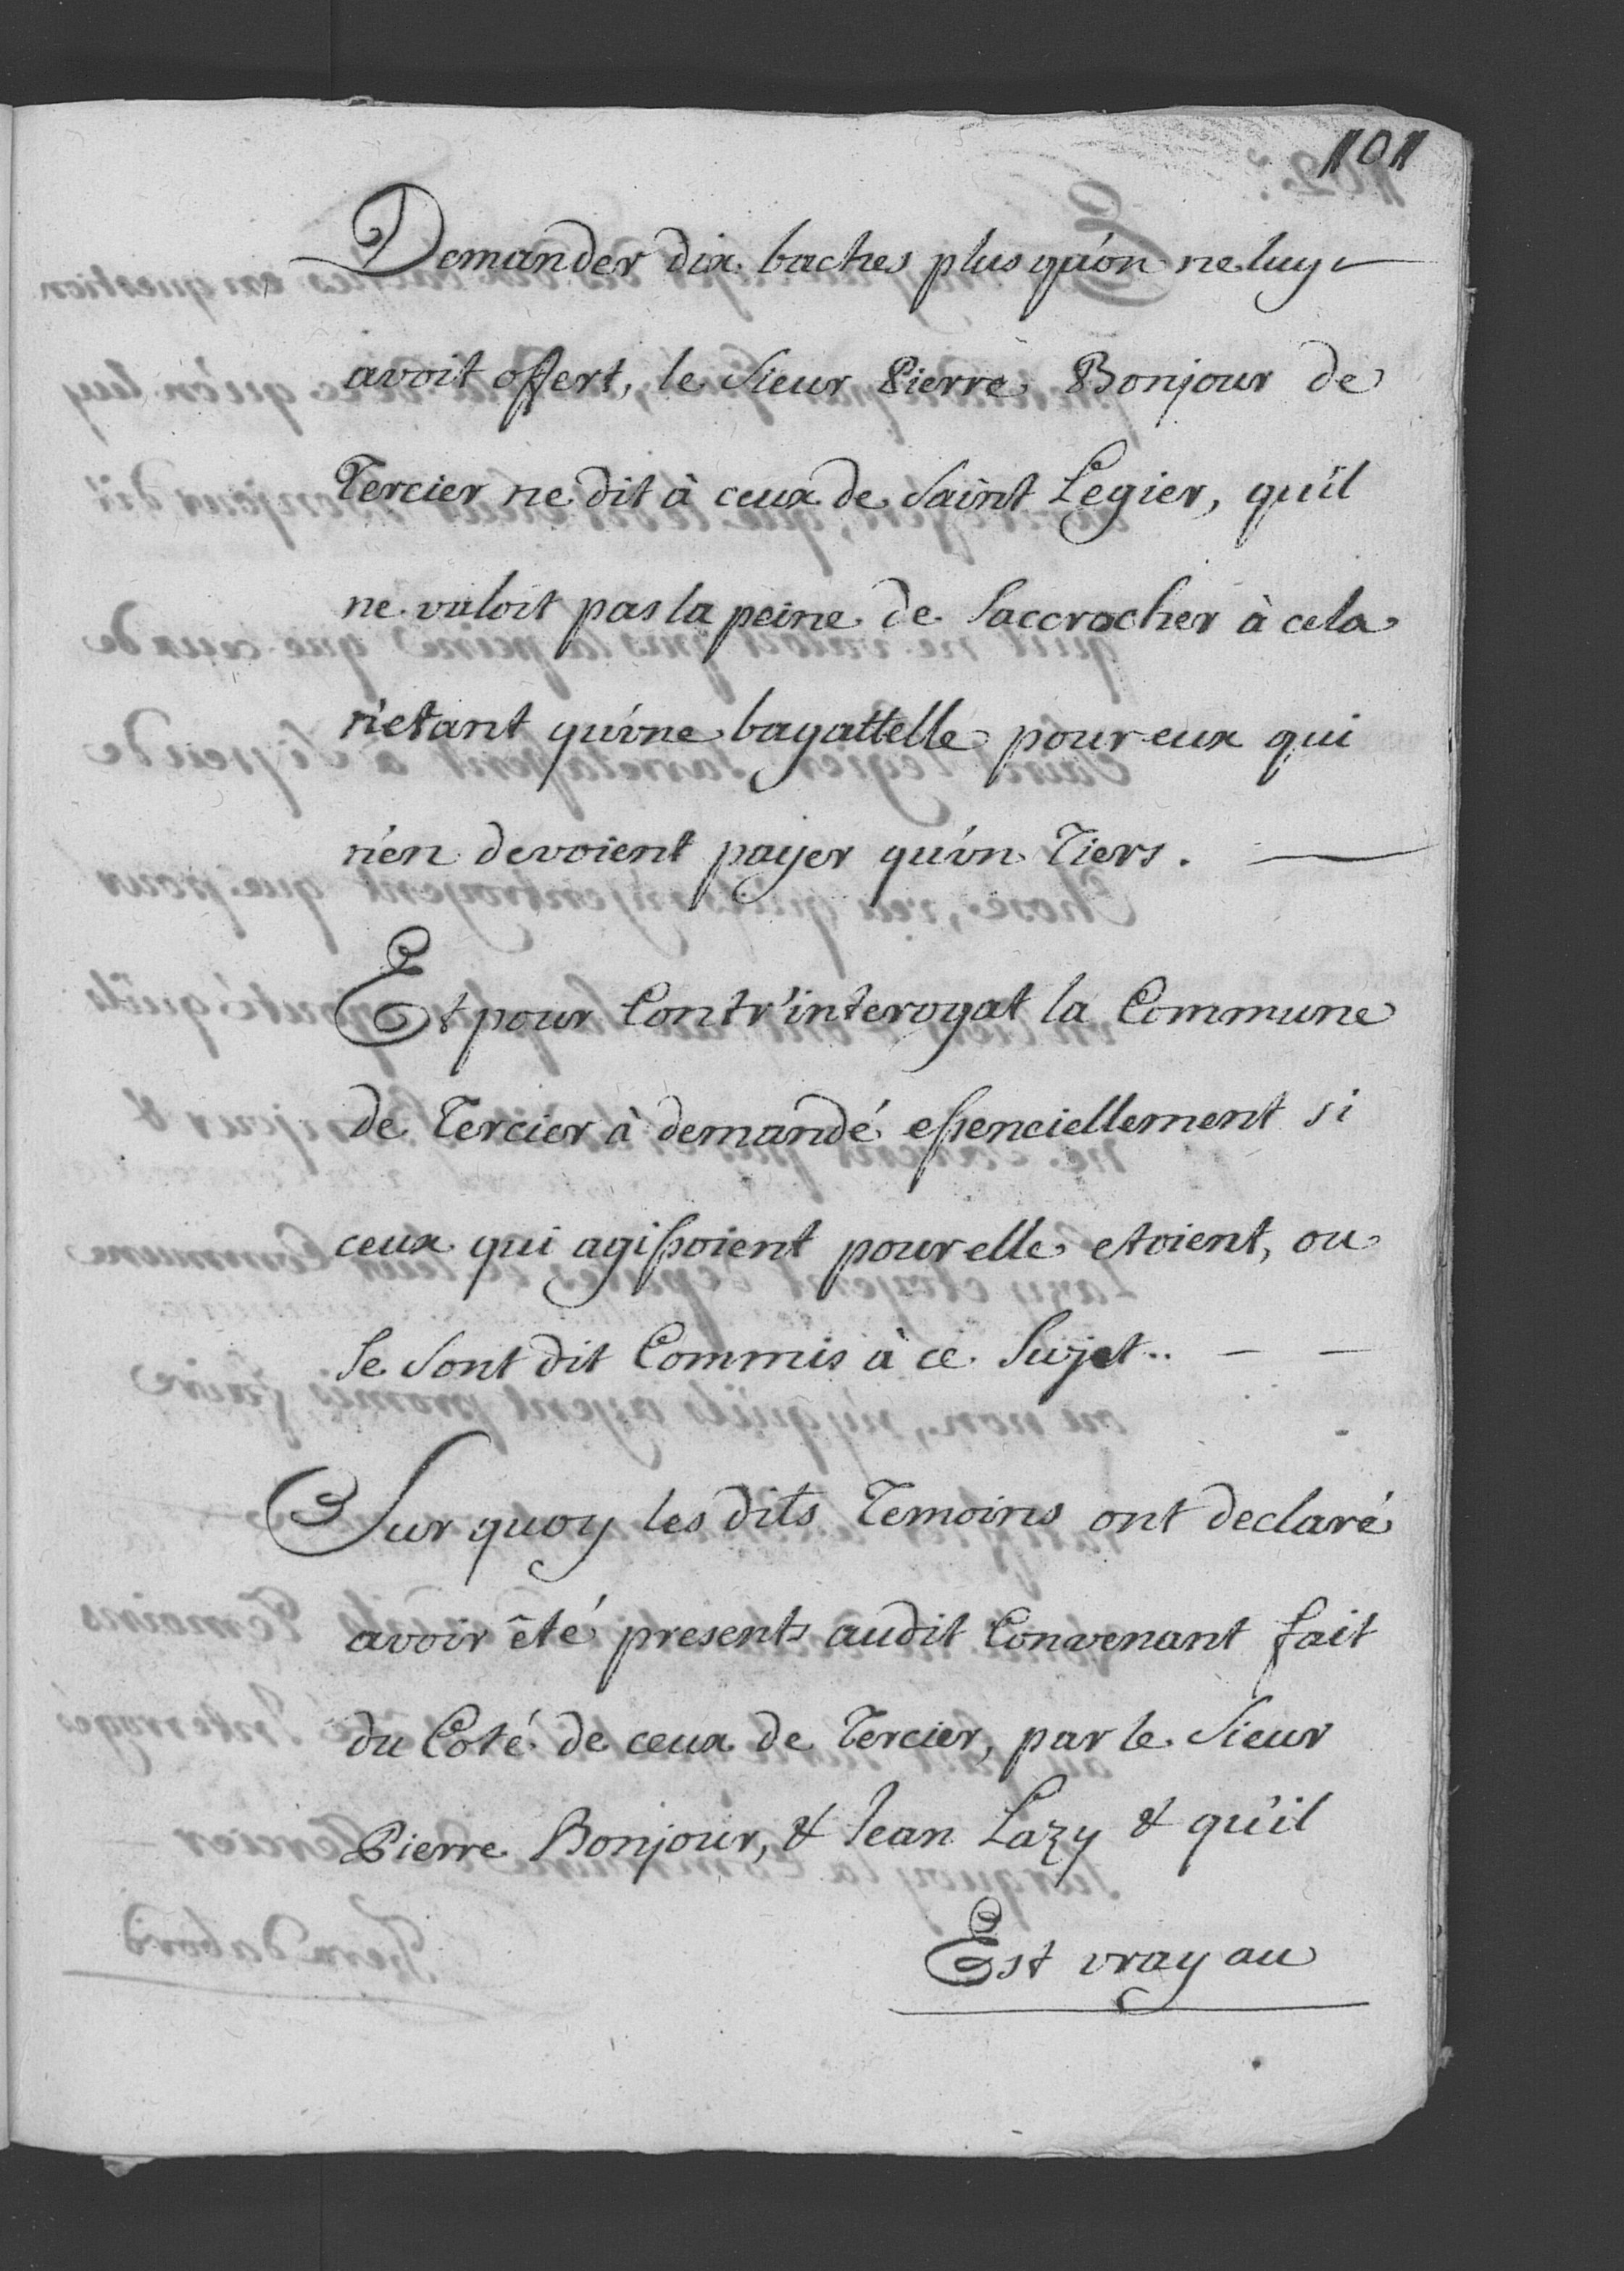 101
Demander dix baches plus qu'on ne luy
avoit offert, le Sieur Pierre Bonjour de
Tercier ne dit à ceux de Saint Legier, qu'il
ne valoit pas la peine de Saccrocher à cela
n'etant qu'une bagattelle pour eux qui
n'en devoient payer qu'un Tiers.
Et pour Contr'interogat la Commune
de Tercier à demandé essenciellement si
ceux qui agissoient pour elle etoient, ou
Se Sont dit Commis à ce Sujet..
Sur quoy les dits Temoins ont declaré
avoir êté presents audit Convenant fait
du Coté de ceux de Tercier, par le Sieur
Pierre Bonjour, & Jean Lazy & qu'il
Est vray au